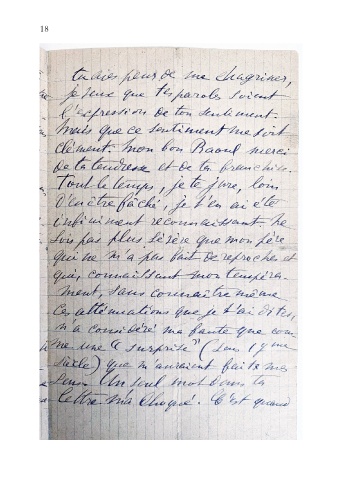 18
tu aies peur de me chagriner,
je veux que tes paroles soient
l'expression de ton sentiment.
Mais que ce sentiment me soit
clément. mon bon Raoul merci
de ta tendresse et de ta franchise.
Tout le temps, je te jure, loin
d'en être fâché, je t'en ai été
infiniment reconnaissant. Ne
sois pas plus sévère que mon père
qui ne m'a pas fait de reproches et
qui, connaissant mon tempéra-
ment, sans connaître même
ces atténuations que je t'ai dites,
n'a considéré ma faute que com-
me une "surprise" (
) que m'auraient faite mes
sens. Un seul mot dans ta
lettre m'a choqué. C'est quand